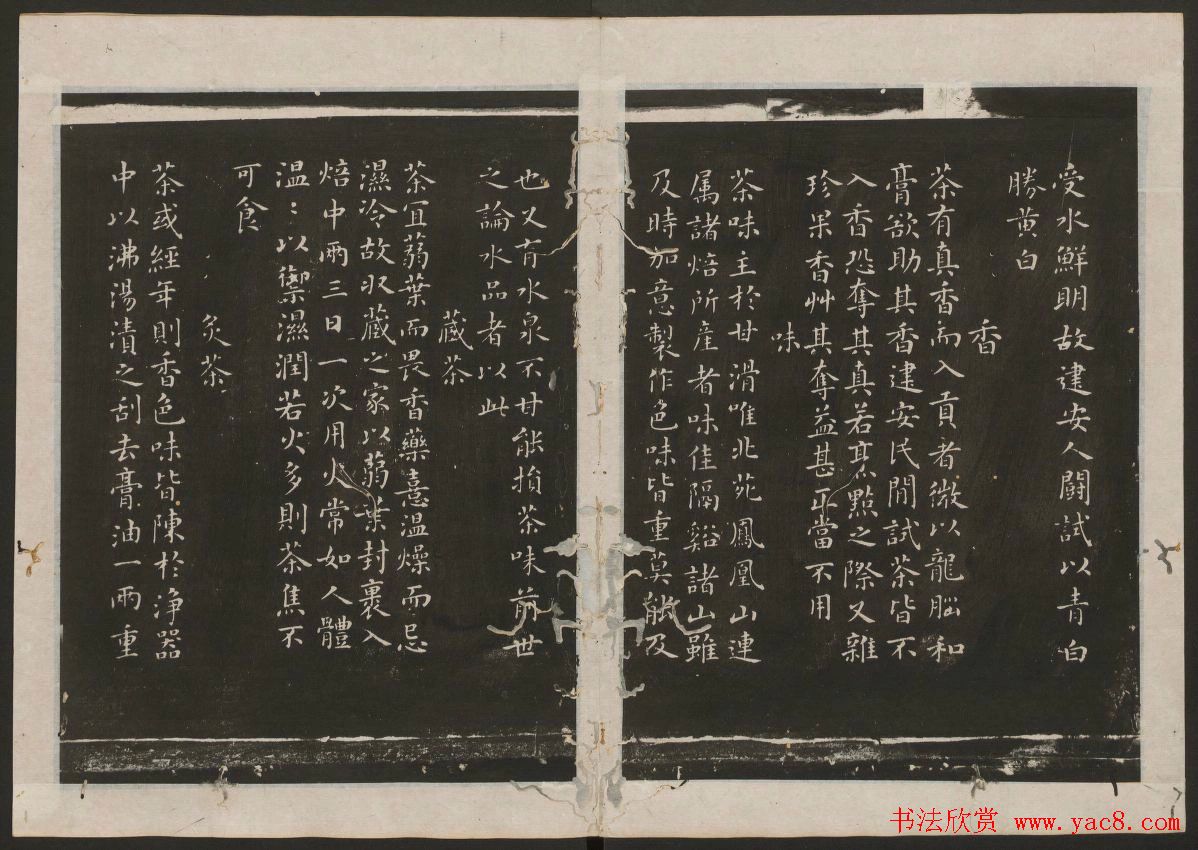 受水鮮明故建安人鬪試以青白
勝黄白
香
茶有真香而入貢者微以龍腦和
膏欲助其香建安民間試茶皆不
入香恐奪其真若烹點之際又雜
珍果香艸其奪益甚正當不用
味
茶味主於甘滑唯北苑鳳凰山連
属諸焙所産者味佳隔谿諸山雖
及時加意製作色味皆重莫能及
也又有水泉不甘能損茶味前世
之論水品者以此
藏茶
茶宜蒻葉而畏香藥憙温燥而忌
濕冷故収藏之家以蒻葉封裹入
焙中兩三日一次用火常如人體
温〻以禦濕潤若火多則茶焦不
可食
炙茶
茶或經年則香色味皆陳於浄器
中以沸湯漬之刮去膏油一兩重
书法欣赏 www.yac8.com